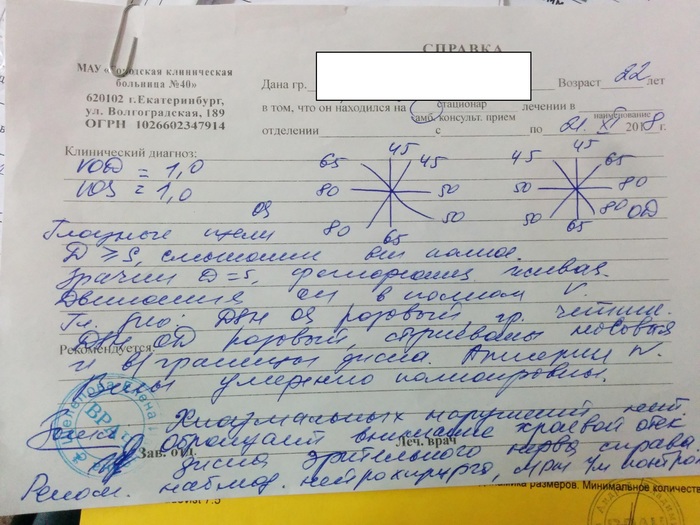 СПРАВКА
МАУ «Городская клиническая
больница №40»
620102 г.Екатеринбург,
ул. Волгоградская, 189
ОГРН 1026602347914
Дана гр. Возраст 22 лет
в том, что он находился на стационар лечении в
амб. консульт. прием наименование
отделении с по 21. XI 2018 г.
Клинический диагноз:
VOD = 1,0
VOS = 1,0
45
65 45
80 50
80 50
65
OS
45
45 65
50 80
50 80
65
OD
Глазные щели
D ≥ S, смыкании их полное.
Зрачки D = S, фотореакция живая.
Движения их в полном V.
Гл. дно: ДЗН OS розовый, гр. четкие.
ДЗН OD розовый, стушеваны носовая
и в/границы диска. Артерии N.
Вены умеренно полнокровны.
Рекомендуется:
Хиазмальных нарушений нет.
Обращает внимание краевой отек
диска зрительного нерва справа.
Реком. наблюд. нейрохирурга, МРТ контр
Зав. отд. Леч. врач
ВРАЧ
размеров. Минимальное количество